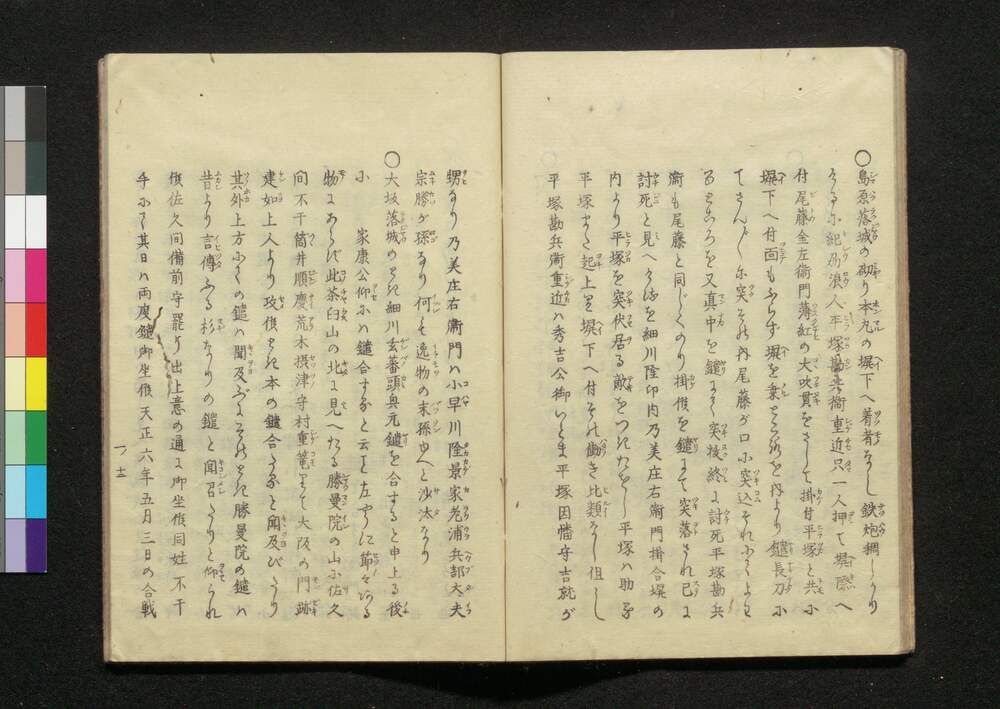 ○島原落城の砌り本丸の堀下へ着者なし鉄炮稠しかり
ける小紀州浪人平塚勘兵衛重近只一人押て堀際へ
付尾藤金左衛門薄紅の大吹貫をさして掛付平塚と共小
堀下へ付面もふらず堀を乗る所を内より鑓長刀小
てさん〴〵小突その内尾藤が口小突込それふかくよは
るところを又真中を鑓にて突抜終に討死平塚勘兵
衛も尾藤と同じくのり掛候を鑓にて突落され已に
討死と見へ候を細川隆印内乃美庄右衛門掛合堀の
内より平塚を突伏居る敵をつきたをし平塚ハ助る
平塚また起上り堀下へ付その働き比類なし但し
平塚勘兵衛重近ハ秀吉公御いとま平塚因幡守吉就が
甥なり乃美庄右衛門ハ小早川隆景家老浦兵部大夫
宗勝が孫なり何も逸物の末孫也へと沙汰なり
○大坂落城のとき細川玄蕃頭興元鑓を合すると申上る後
小　家康公仰小ハ鑓合するなと云こと左やうに節々ある
物にあらず此茶臼山の北に見へたる勝曼院の山小佐久
間不干筒井順慶荒木摂津守村重篭りて大阪の門跡
建如上人より攻候とき本の鑓合するなと聞及びたり
其外上方小ての鑓ハ聞及ぶにそのとき勝曼院の鑓ハ
昔より言傳ふる杉なりの鑓と聞召たりと仰られ
候佐久間備前守罷り出上意の通に御坐候同姓不干
手小て其日ハ両度鑓御坐候天正六年五月三日の合戦